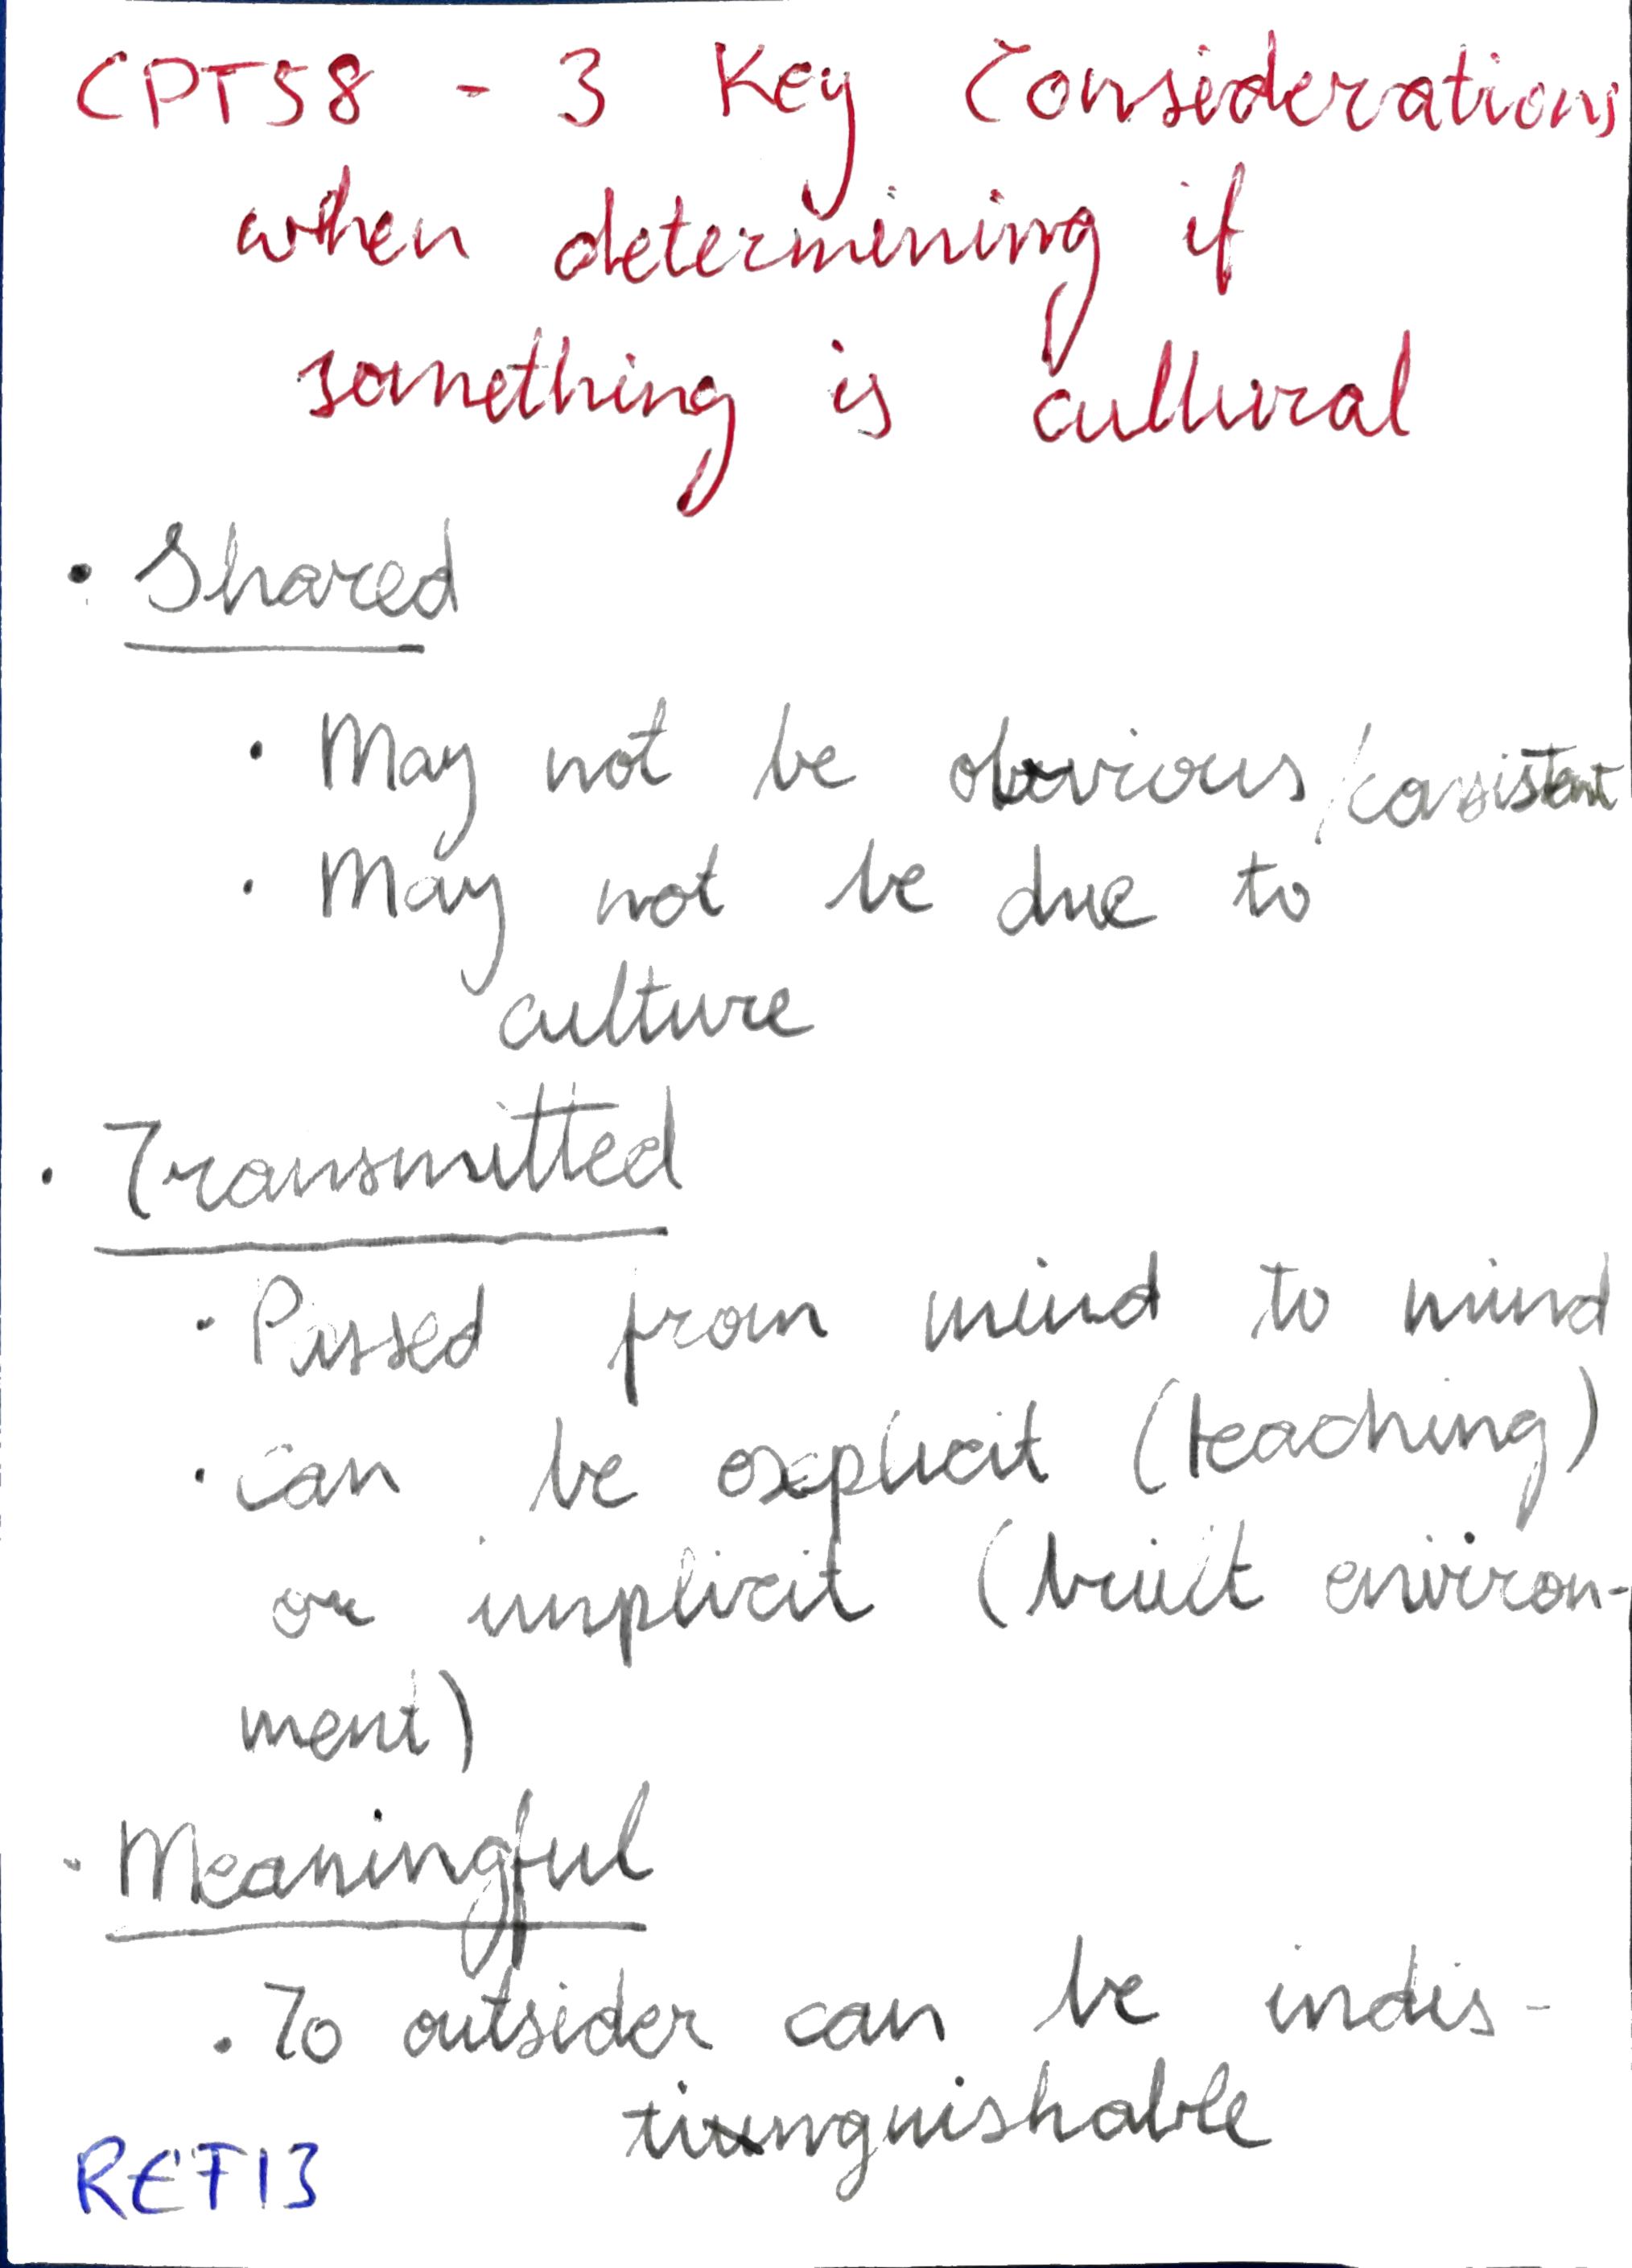 CPT58 - 3 Key Considerations
when determining if
something is cultural
• Shared
• May not be obvious/consistent
• May not be due to
culture
• Transmitted
• Passed from mind to mind
• can be explicit (teaching)
or implicit (built environ-
ment)
• Meaningful
• To outsider can be indis-
tinguishable
REF13